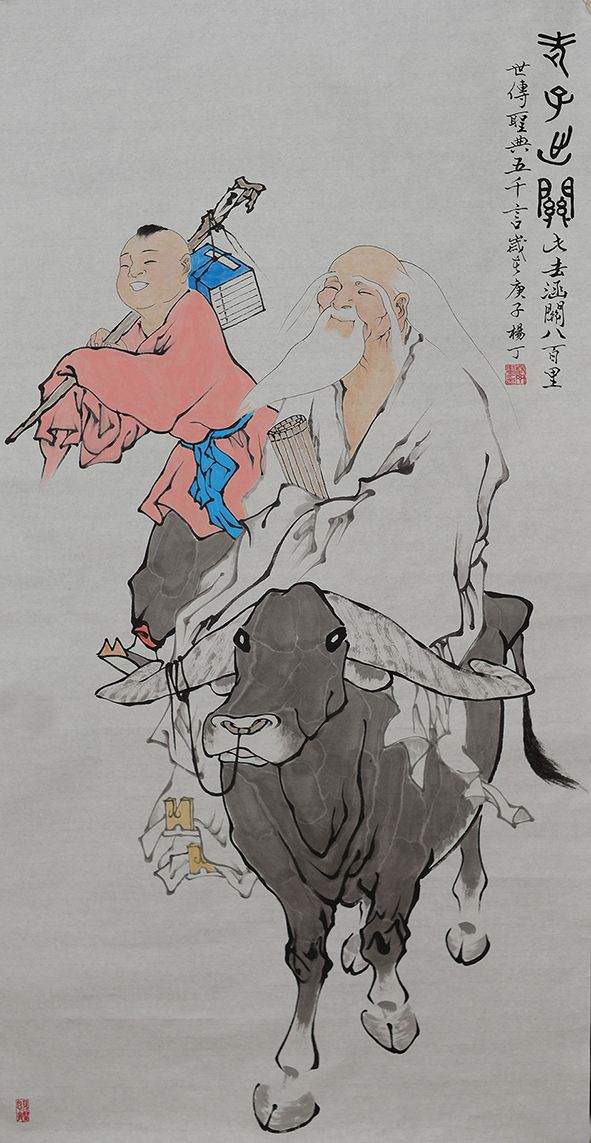 老子出關此去涵關八百里
世傳聖典五千言歲在庚子楊丁